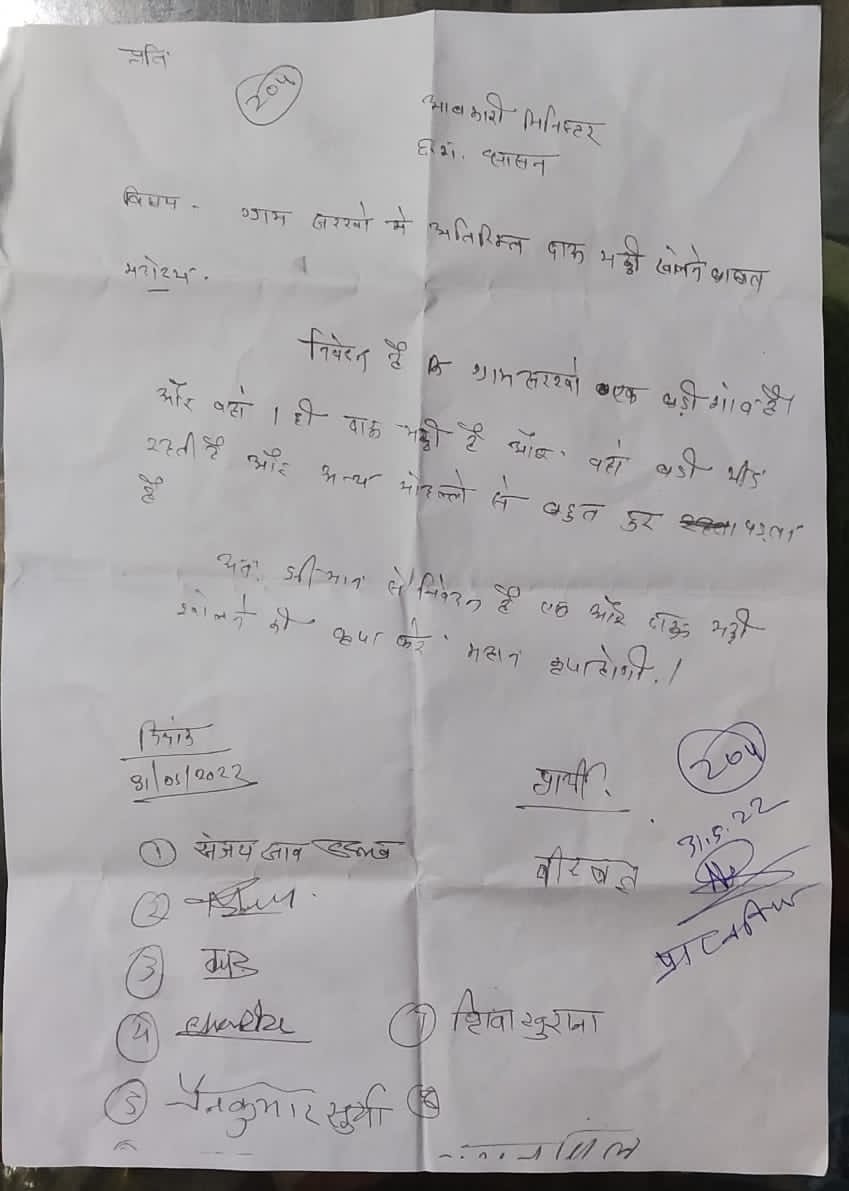 प्रति
204
आबकारी मिनिस्टर
छ.ग. शासन
विषय - ग्राम सरखों में अतिरिक्त दारू भट्टी खोलने बाबत
महोदय.
निवेदन है कि ग्राम सरखों एक बड़ी गांव है।
और वहां 1 ही दारू भट्टी है और वहां बड़ी भीड़
रहती है और अन्य मोहल्ले से बहुत दुर पड़ता
है
अतः श्रीमान से निवेदन है एक और दारू भट्टी
खोलने की कृपा करें महान कृपा होगी।
दिनांक
31/05/2022
प्रार्थी
204
31.5.22
① संजय
②
③
④
⑤ कुमार सूर्या
⑦ शिवा खुराना